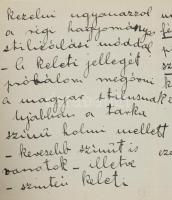 kezelni ugyanazzal
a régi hagyományos
stilizálási móddal
- A keleti jellegét
próbálom megőrni
a magyar stílusnak
újabban a tarka
színű holmi mellett
- kevesebb színűt is
vonatok - illetve
- szintén keleti